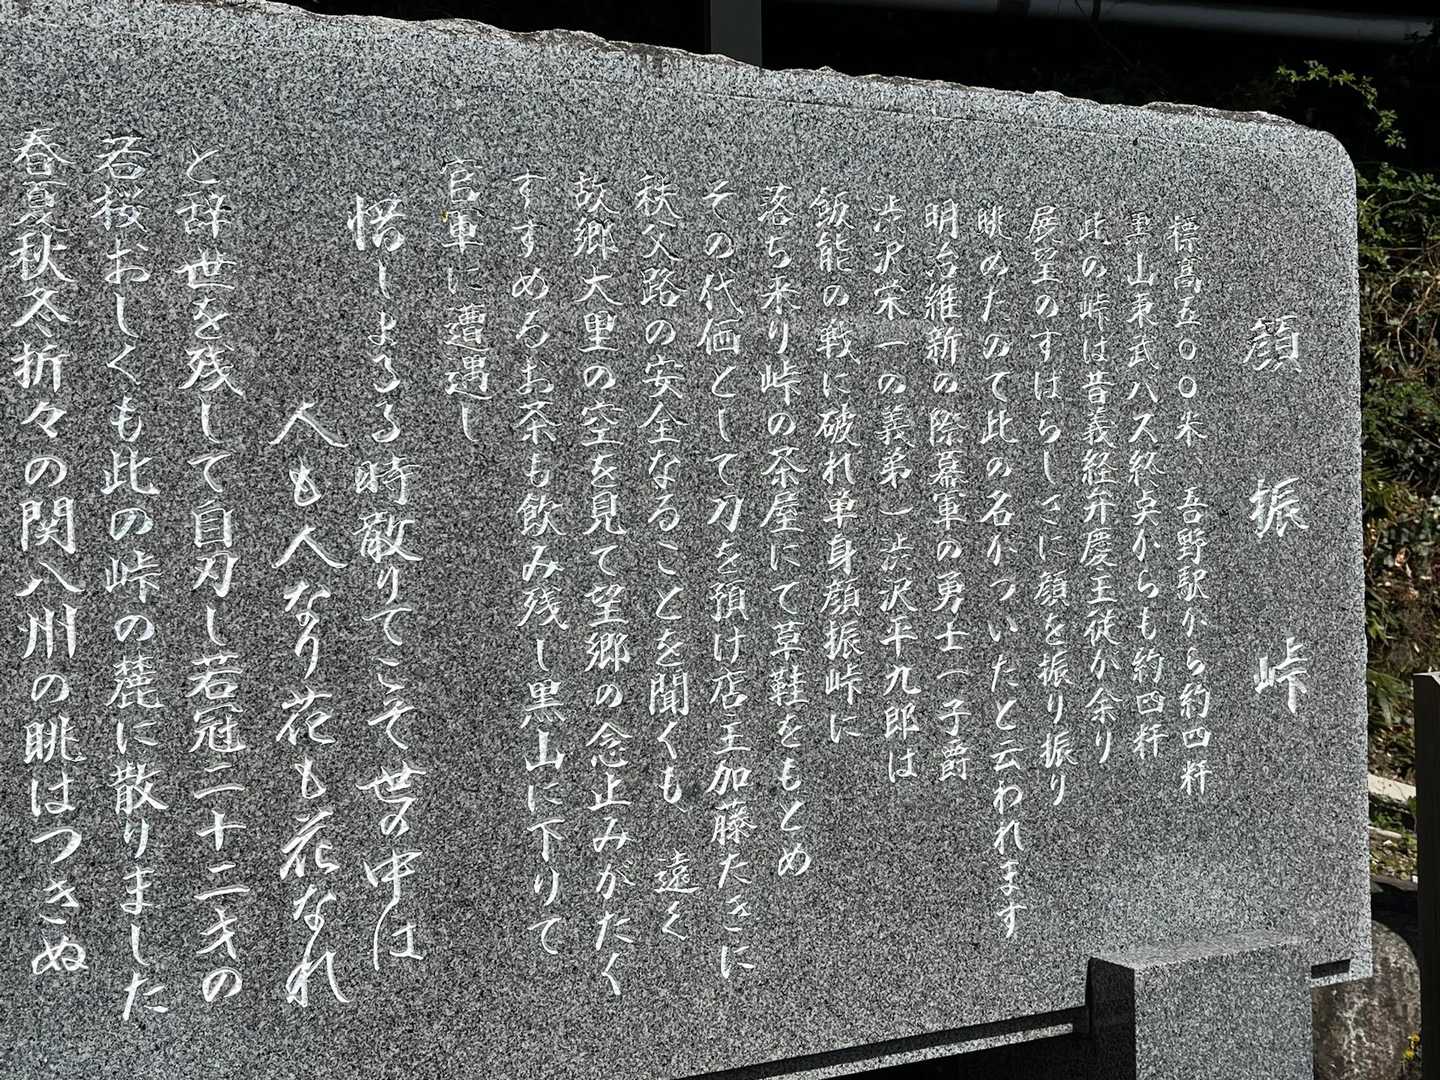 顔振峠
標高五〇〇米、吾野駅から約四粁
黒山東武バス終点からも約四粁
此の峠は昔義経弁慶主従か余り
展望のすはらしさに顔を振り振り
眺めたので此の名がついたと云われます
明治維新の際幕軍の勇士(子爵
渋沢栄一の義弟)渋沢平九郎は
飯能の戦に破れ単身顔振峠に
落ち来り峠の茶屋にて草鞋をもとめ
その代価として刀を預け店主加藤たきに
秩父路の安全なることを聞くも 遠く
故郷大里の空を見て望郷の念止みがたく
すすめるお茶も飲み残し黒山に下りて
官軍に遭遇し
惜しまるる時散りてこそ世の中は
人も人なり花も花なれ
と辞世を残して自刃し若冠二十二才の
若桜おしくも此の峠の麓に散りました
春夏秋冬折々の関八州の眺はつきぬ